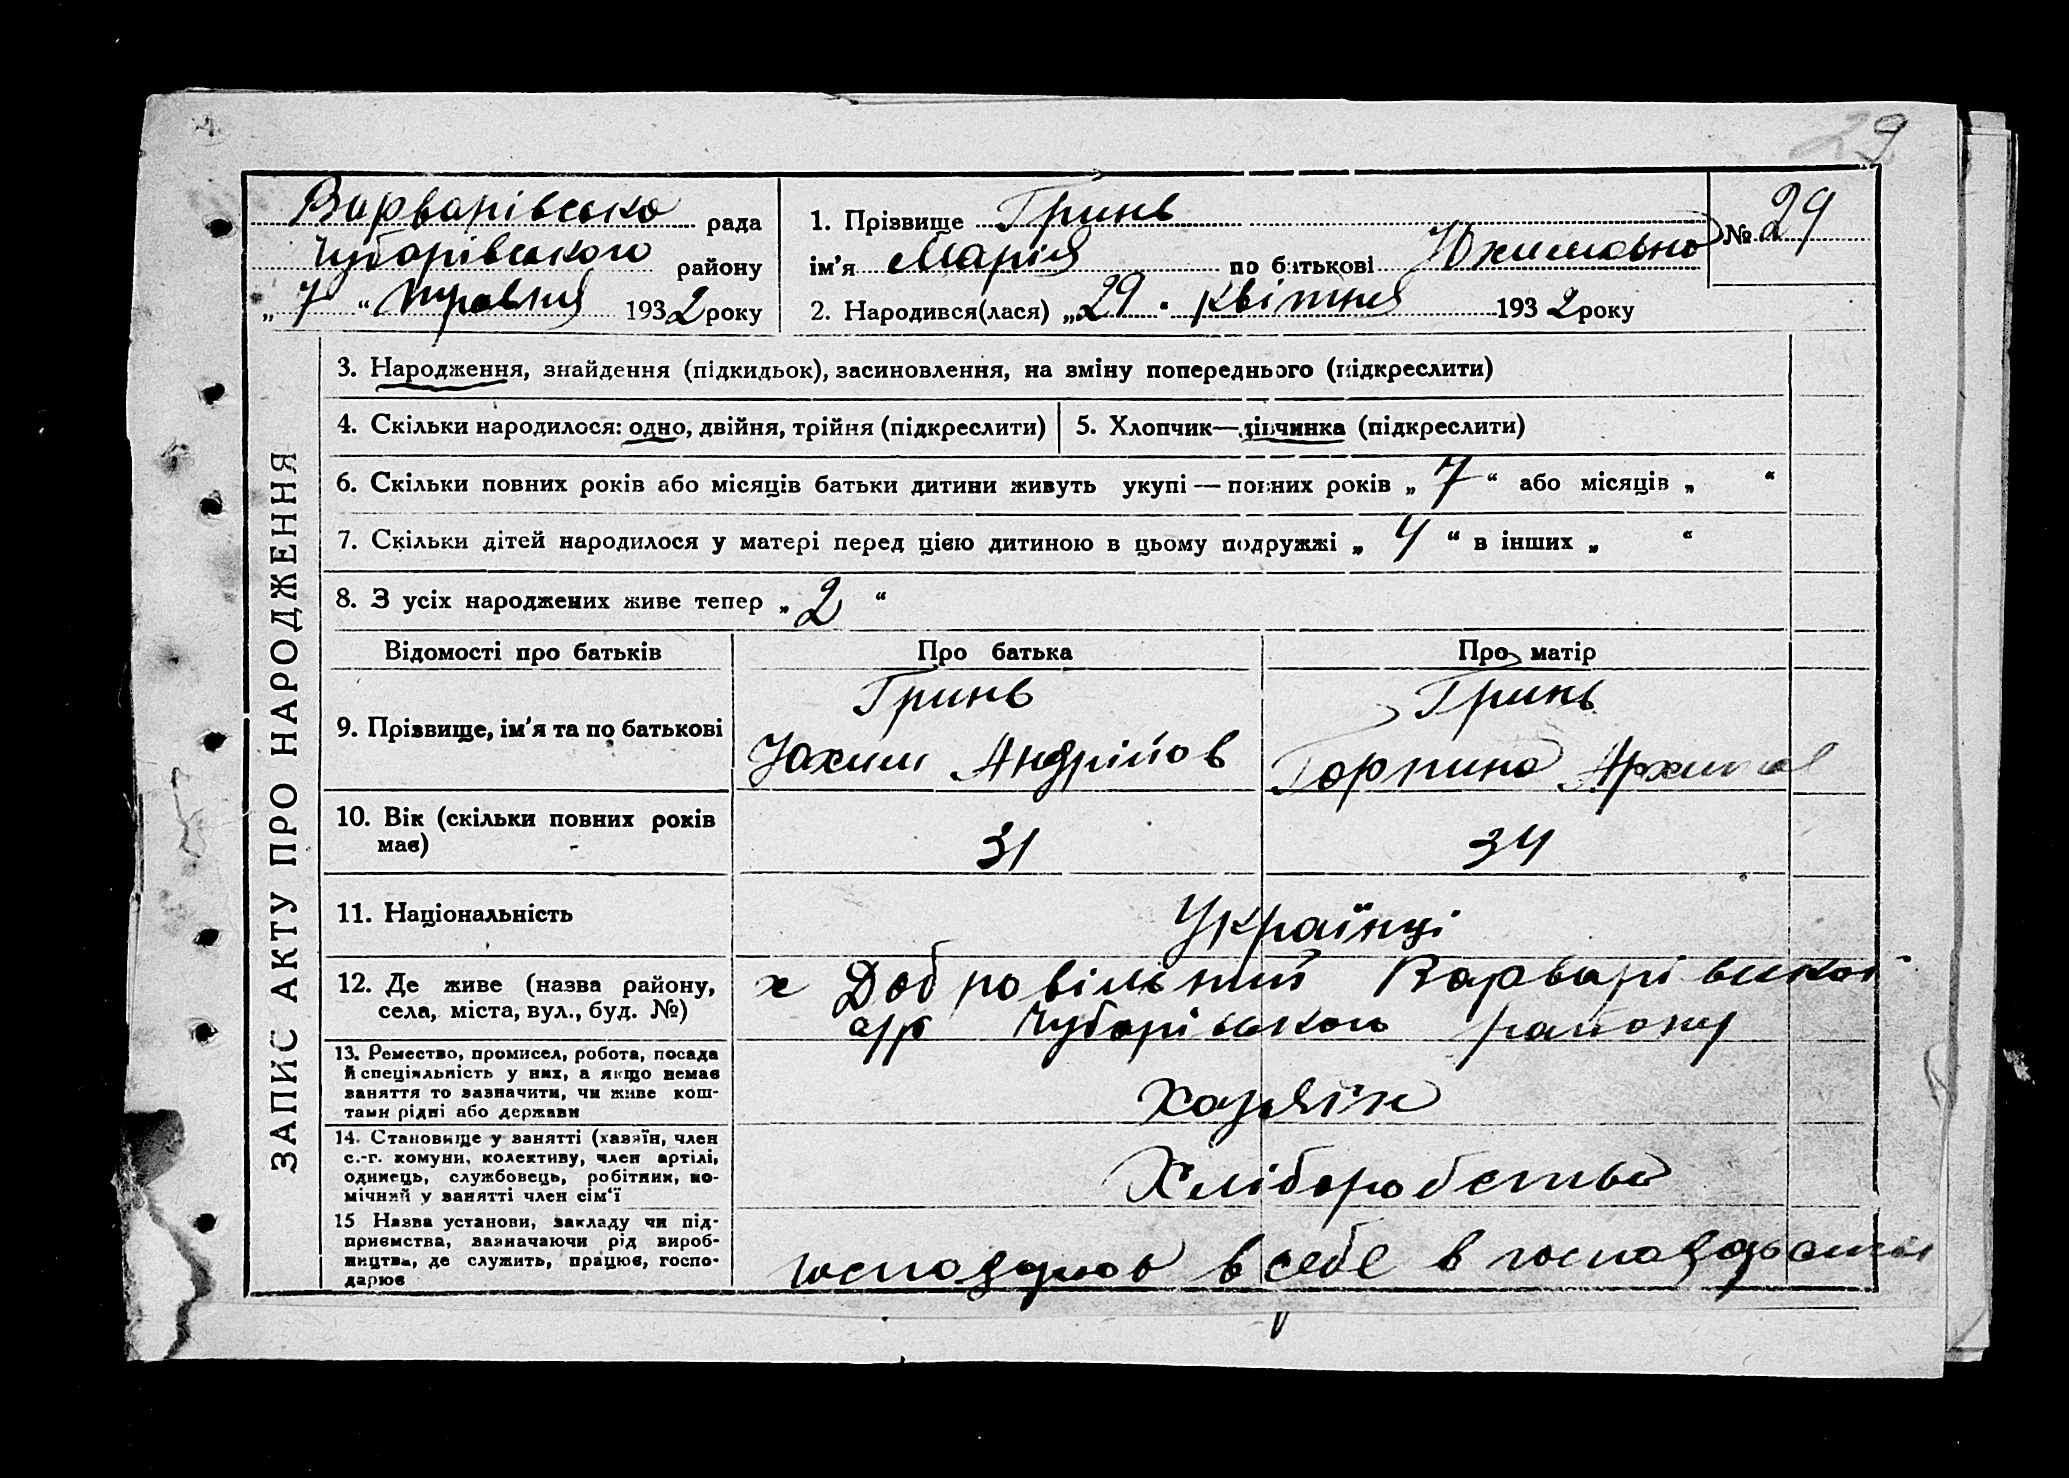 29
Варварівсько рада
Чубарівського району
„ 7 “ травня 1932 року
1. Прізвище Гринь
ім’я Марія по батькові Юхимовно
№ 29
2. Народився(лася) „29 “ квітня 1932 року
ЗАПИС АКТУ ПРО НАРОДЖЕННЯ
3. Народження, знайдення (підкидьок), засиновлення, на зміну попереднього (підкреслити)
4. Скільки народилося: одно, двійня, трійня (підкреслити)
5. Хлопчик—дівчинка (підкреслити)
6. Скільки повних років або місяців батьки дитини живуть укупі — повних років „ 7 “ або місяців „ “
7. Скільки дітей народилося у матері перед цією дитиною в цьому подружжі „ 4 “ в інших „ “
8. З усіх народжених живе тепер „ 2 “
Відомості про батьків
Про батька
Про матір
9. Прізвище, ім’я та по батькові
Гринь
Юхим Андрійов
Гринь
Горпина Архипов
10. Вік (скільки повних років
має)
31
34
11. Національність
Українці
12. Де живе (назва району,
села, міста, вул., буд. №)
х Добровільний Варварівської
с/р Чубарівського району
13. Ремество, промисел, робота, посада
й спеціяльність у них, а якщо немає
заняття то зазначити, чи живе кош-
тами рідні або держави
Хазяїн
14. Становище у занятті (хазяїн, член
с.-г. комуни, колективу, член артілі,
одинець, службовець, робітник, по-
мічний у занятті член сім’ї
Хліборобство
15 Назва установи, закладу чи під-
приємства, зазначаючи рід вироб-
ництва, де служить, працює, госпо-
дарює
господарює в себе в господарстві